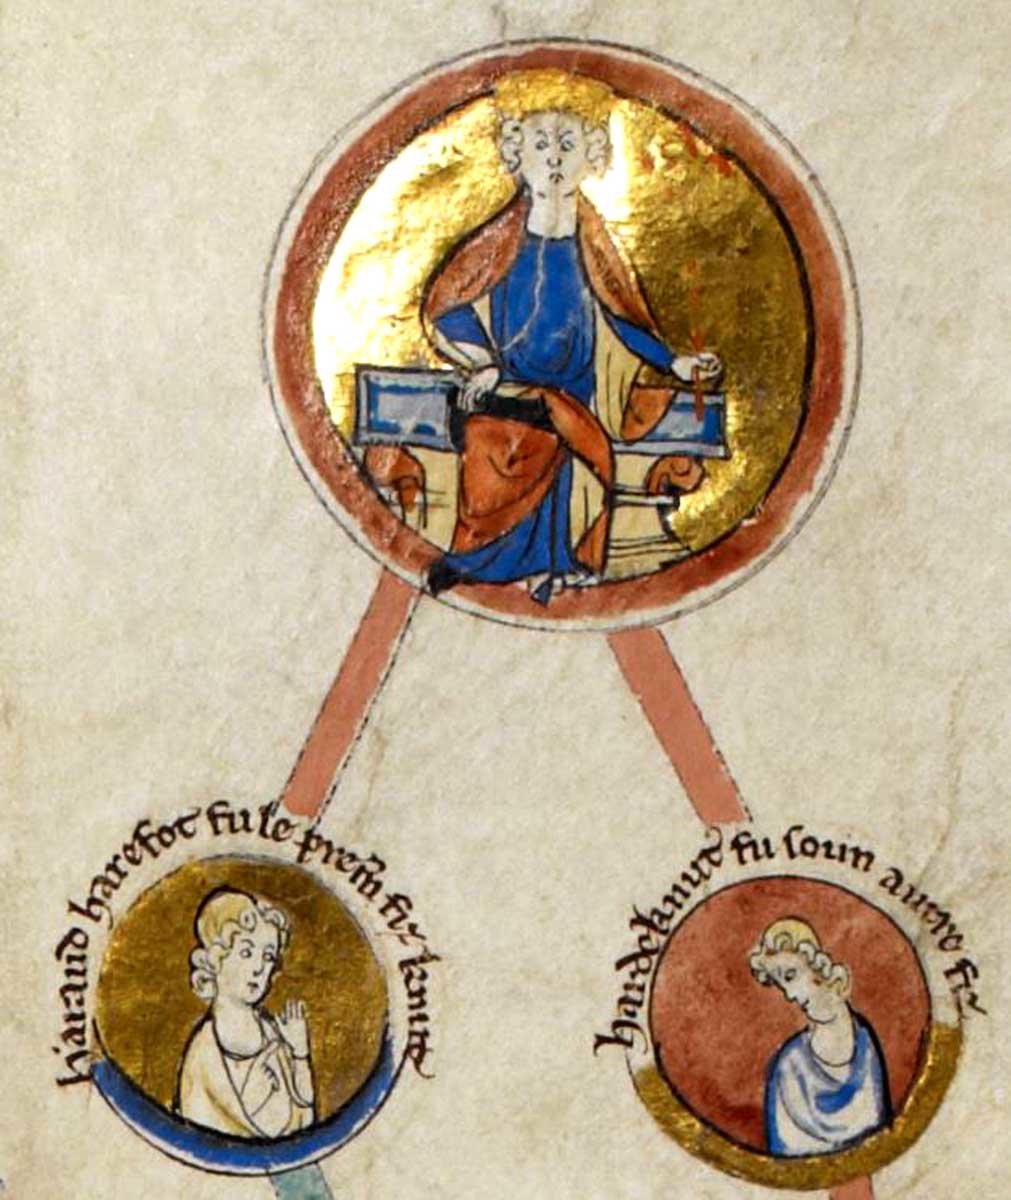 haraud harefot fu le prem̃ fiz knut
hardeknut fu soun autre fiz